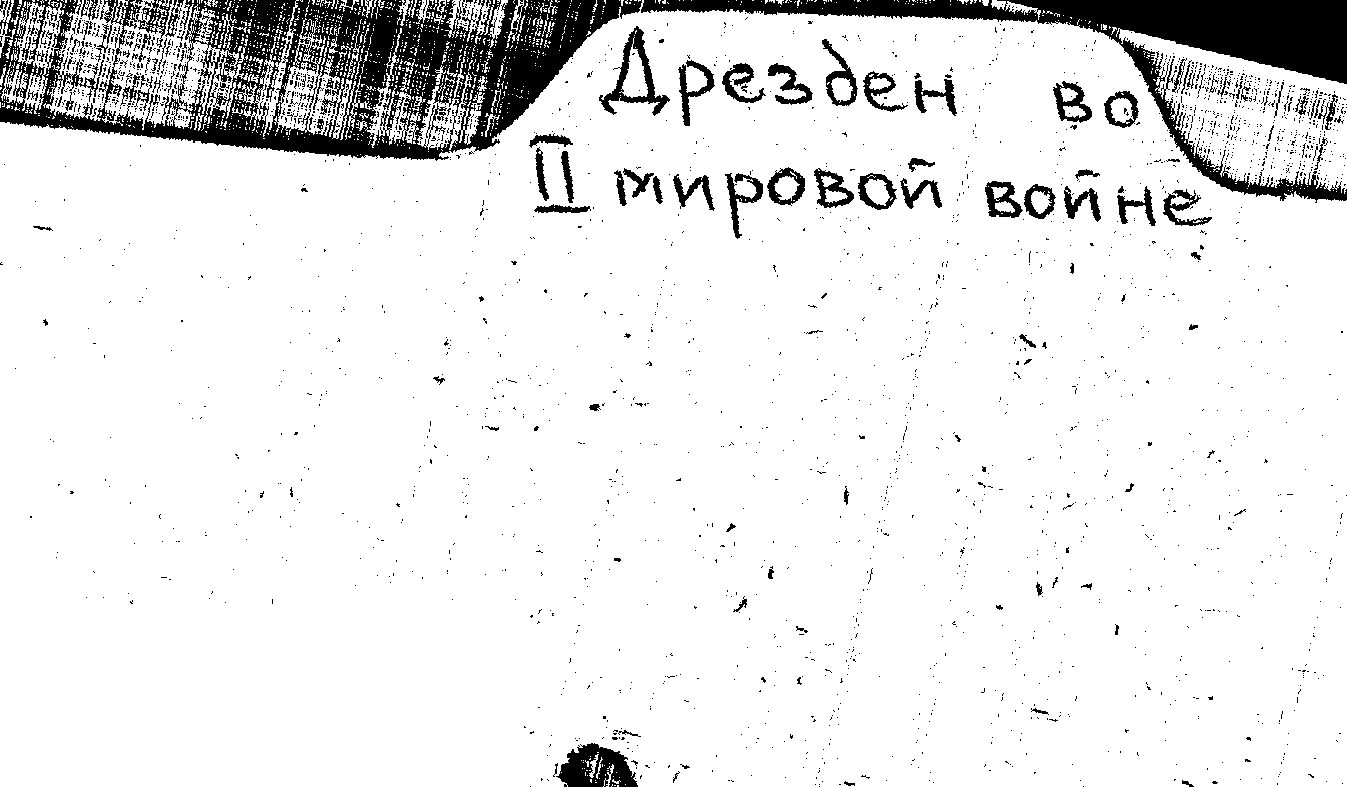 Дрезден во
II мировой войне